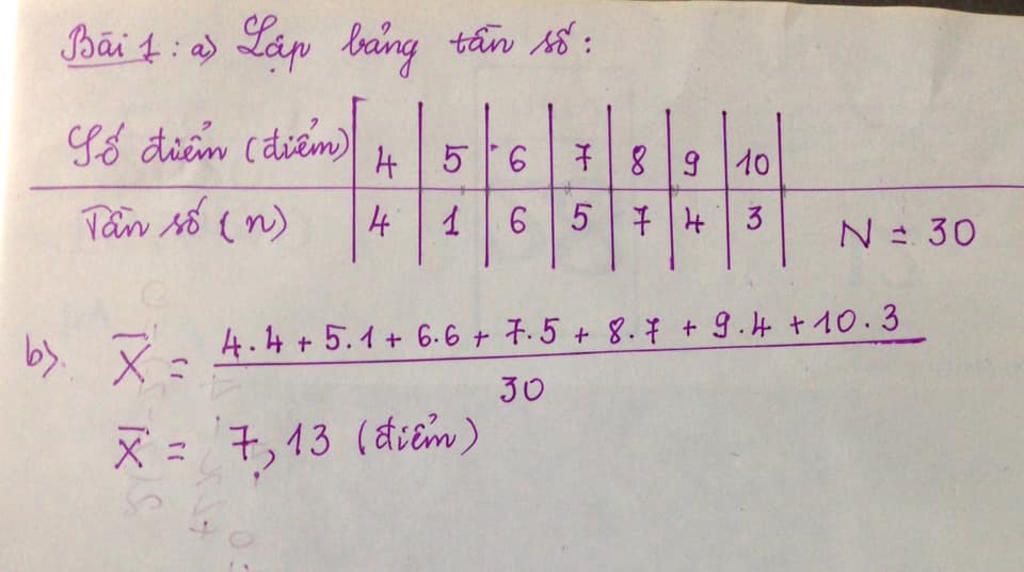 Bài 1: a) Lập bảng tần số:
Số điểm (điểm) 4 5 6 7 8 9 10
Tần số (n) 4 1 6 5 7 4 3 N = 30
b). X̄ = 4.4 + 5.1 + 6.6 + 7.5 + 8.7 + 9.4 + 10.3
30
X̄ = 7,13 (điểm)